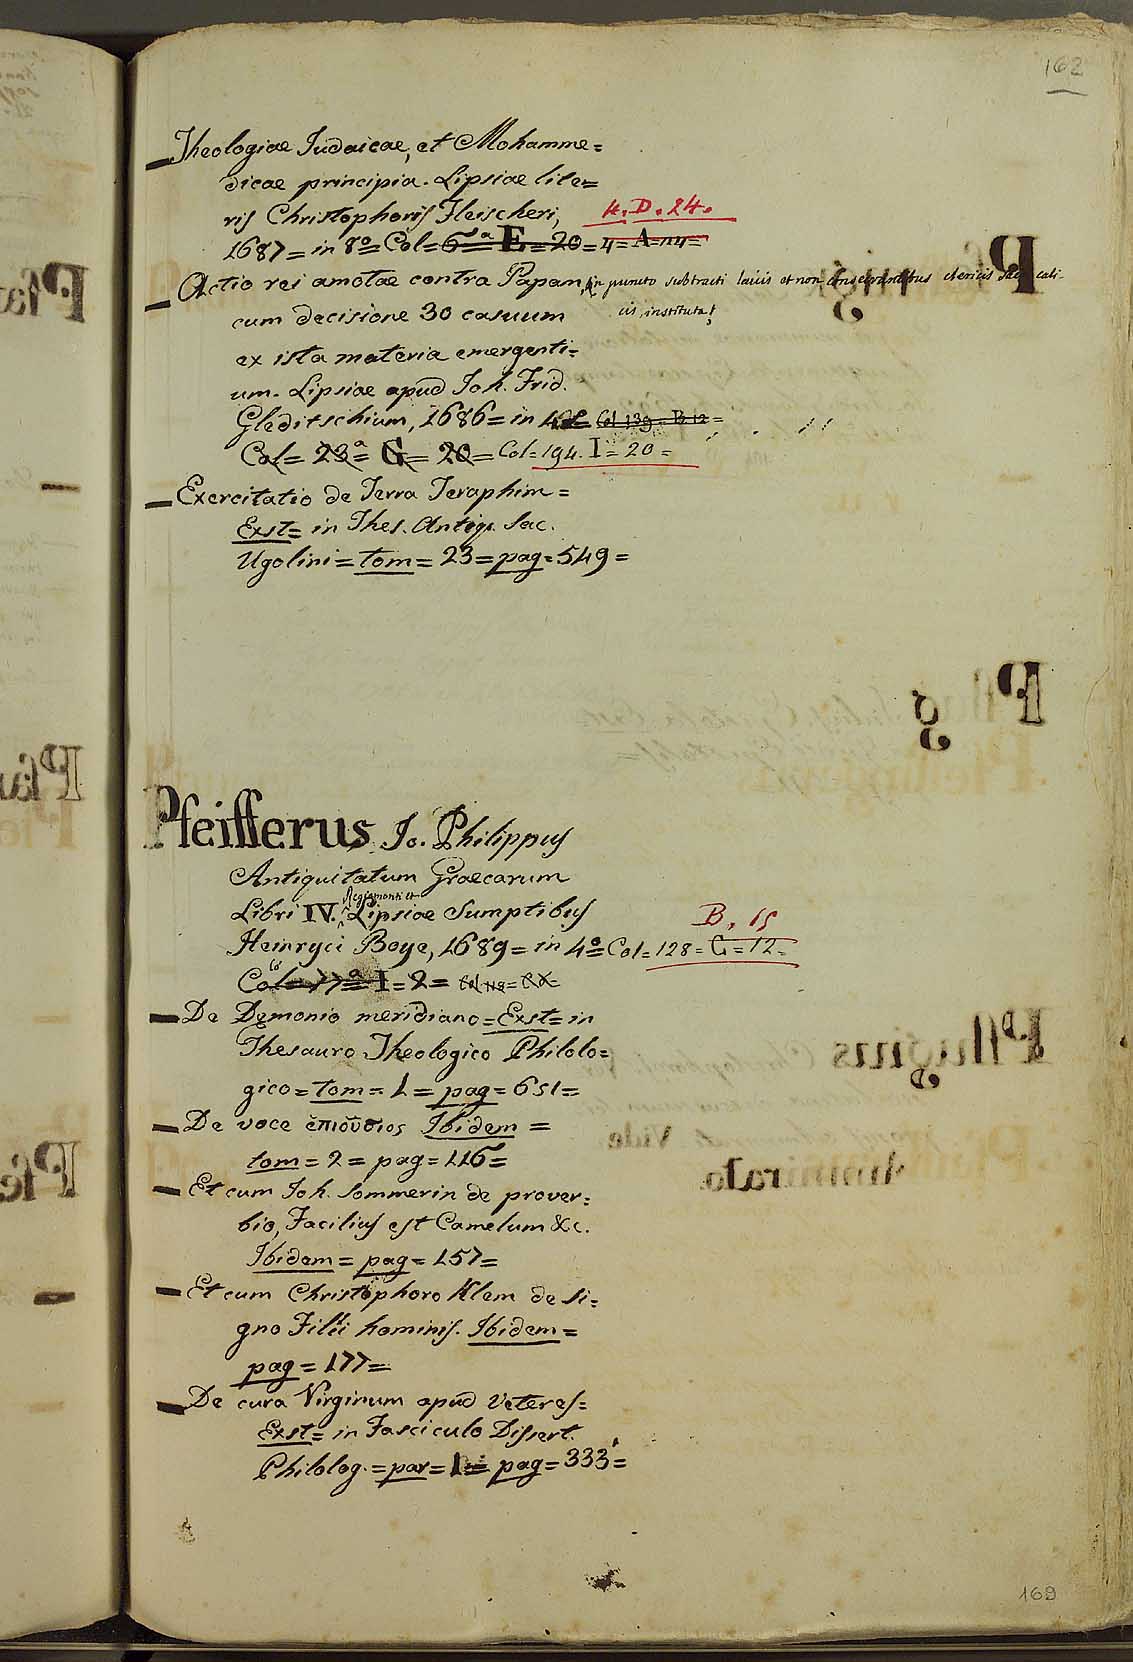 162
Theologiae Judaicae, et Mohamme=
dicae principia. Lipsiae lite=
ris Christophoris Fleischeri, 4. D. 24.
1687= in 8º= Col= 6ª E= 20= 4= A= 14=
Actio rei amotae contra Papam, in puncto subtracti laicis et non consecrantibus clericis sacri cali-
cum decisione 30 casuum cis, instituta,
ex ista materia emergenti=
um. Lipsiae apud Joh. Frid.
Gleditschium, 1686= in 4º= Col. 139= B. 12=
Col= 23ª= G= 20= Col= 194. I= 20=
Exercitatio de Terra Teraphim=
Exst= in Thes. Antiqu. Sac.
Ugolini= tom= 23= pag= 549=
Pfeifferus Jo. Philippus
Antiquitatum Graecarum
Libri IV. Regiomonti et Lipsiae Sumptibus
B. 15
Heinryci Boye, 1689= in 4º= Col= 128= C= 12=
Col= 77ª I= 2= Col 118=
De Dęmonio meridiano= Exst= in
Thesauro Theologico Philolo=
gico= tom= 1= pag= 651=
De voce ἐπιούσιος Ibidem=
tom= 2= pag= 116=
Et cum Joh. Sommerin de prover=
bio, Facilius est Camelum &c.
Ibidem= pag= 157=
Et cum Christophoro Klem de Si=
gno Filii hominis. Ibidem=
pag= 177=
De cura Virginum apud Veteres=
Exst= in Fasciculo Dissert.
Philolog.= par= 1= pag= 333=
169